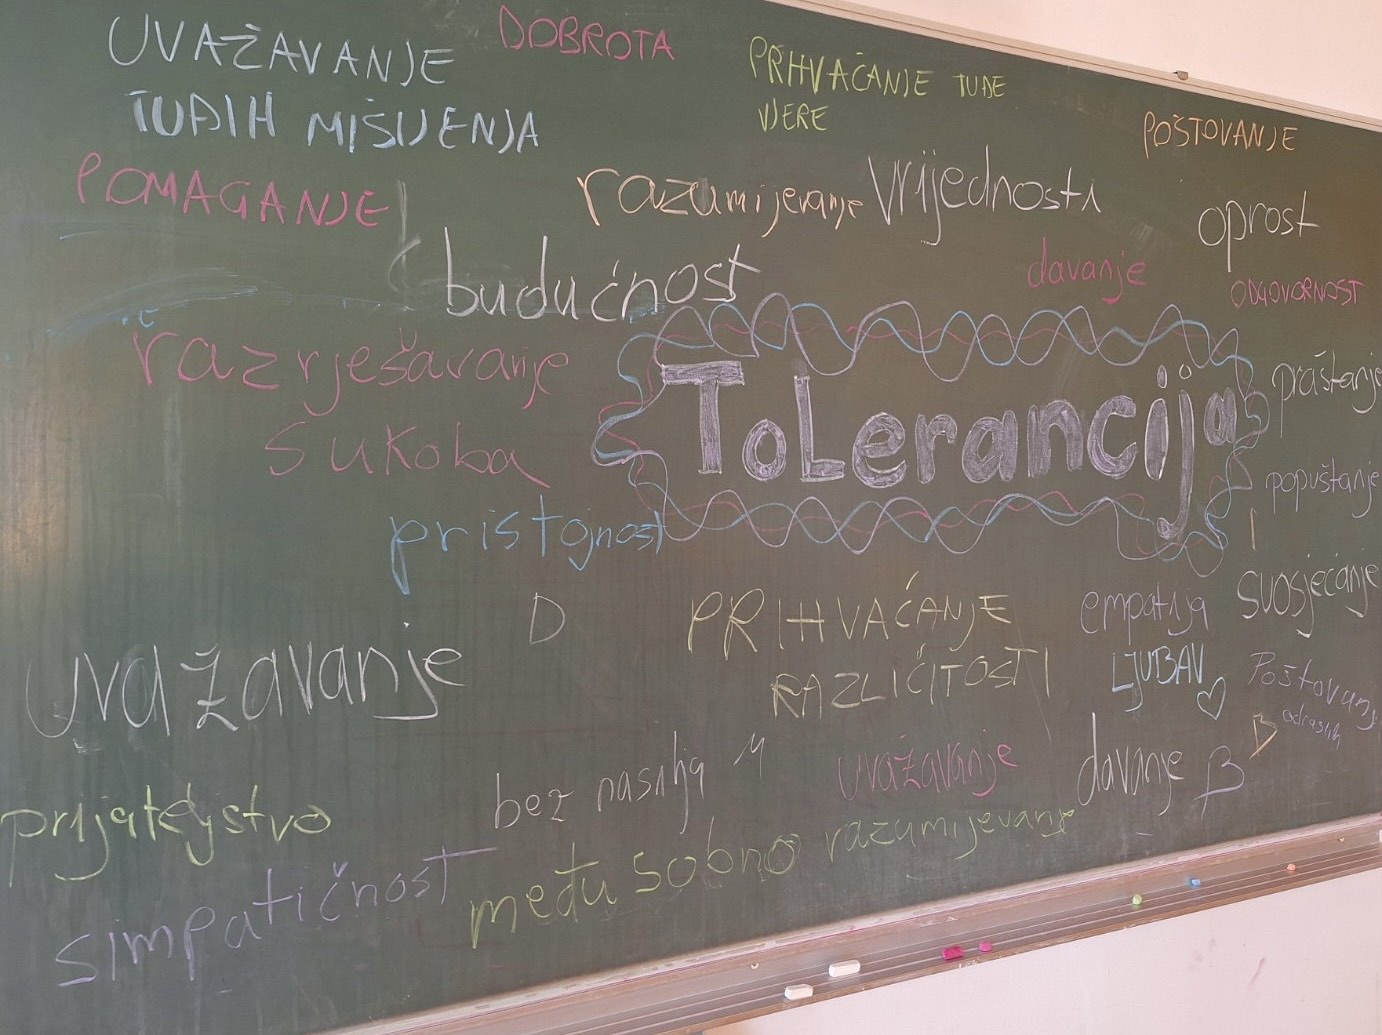 UVAŽAVANJE
TUĐIH MIŠLJENJA
DOBROTA
PRIHVAĆANJE TUĐE
VJERE
POŠTOVANJE
POMAGANJE
razumijevanje
vrijednosti
oprost
budućnost
davanje
ODGOVORNOST
razrješavanje
sukoba
ToLerancija
praštanje
popuštanje
pristojnost
D
PRIHVAĆANJE
RAZLIČITOSTI
empatija
suosjećanje
LJUBAV
uvažavanje
Poštovanje
odraslih
bez nasilja
uvažavanje
davanje
prijateljstvo
simpatičnost
među sobno razumijevanje